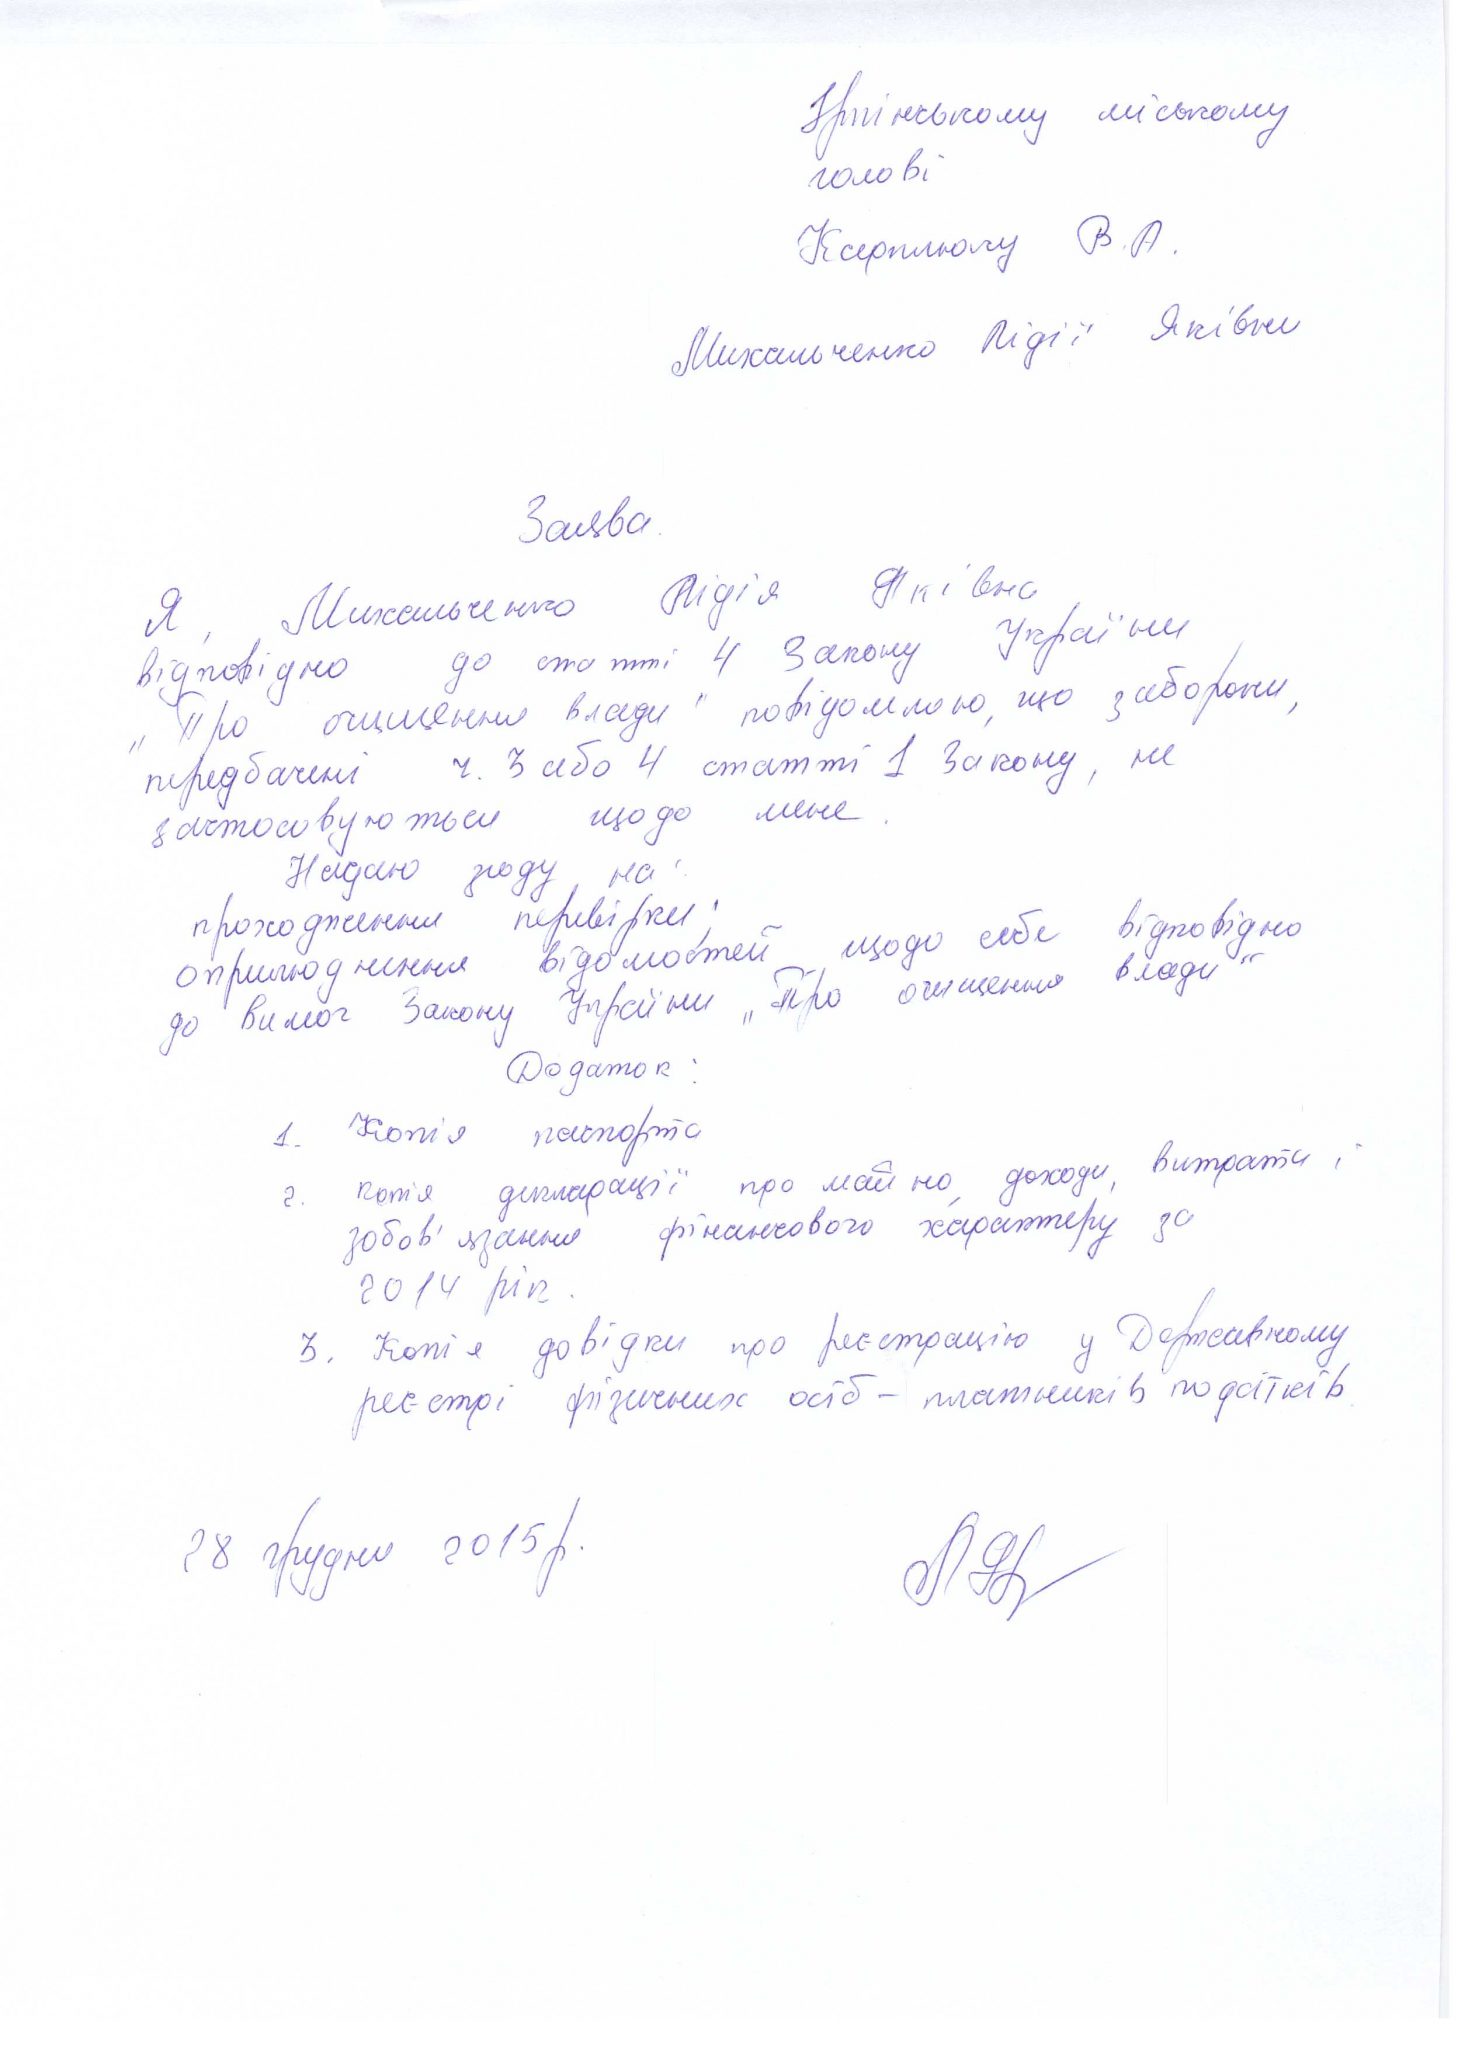 Ірпінському міському
голові
Карплюку В.А.
Михальченко Лідії Яківни
Заява.
Я, Михальченко Лідія Яківна
відповідно до статті 4 Закону України
„Про очищення влади" повідомляю, що заборони,
передбачені ч. 3 або 4 статті 1 Закону, не
застосовуються щодо мене.
Надаю згоду на:
проходження перевірки;
оприлюднення відомостей щодо себе відповідно
до вимог Закону України „Про очищення влади"
Додаток:
1. Копія паспорта
2. Копія декларації про майно, доходи, витрати і
зобов'язання фінансового характеру за
2014 рік.
3. Копія довідки про реєстрацію у Державному
реєстрі фізичних осіб – платників податків.
28 грудня 2015р.